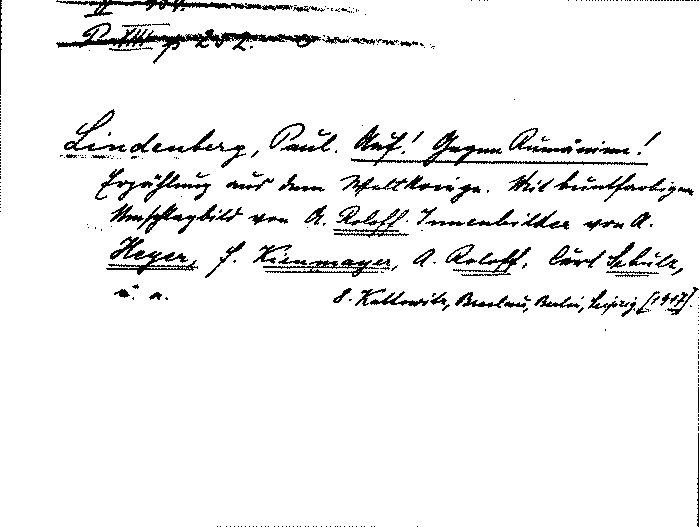 II 434.
P XIII p 252.
Lindenberg, Paul. Auf! Gegen Rumänien!
Erzählung aus dem Weltkriege. Mit buntfarbigem
Umschlagbild von A. Roloff. Innenbilder von A.
Heyer, F. Kienmayer, A. Roloff, Curt Schulz,
u. a. 8. Kattowitz, Breslau, Berlin, Leipzig [1917].